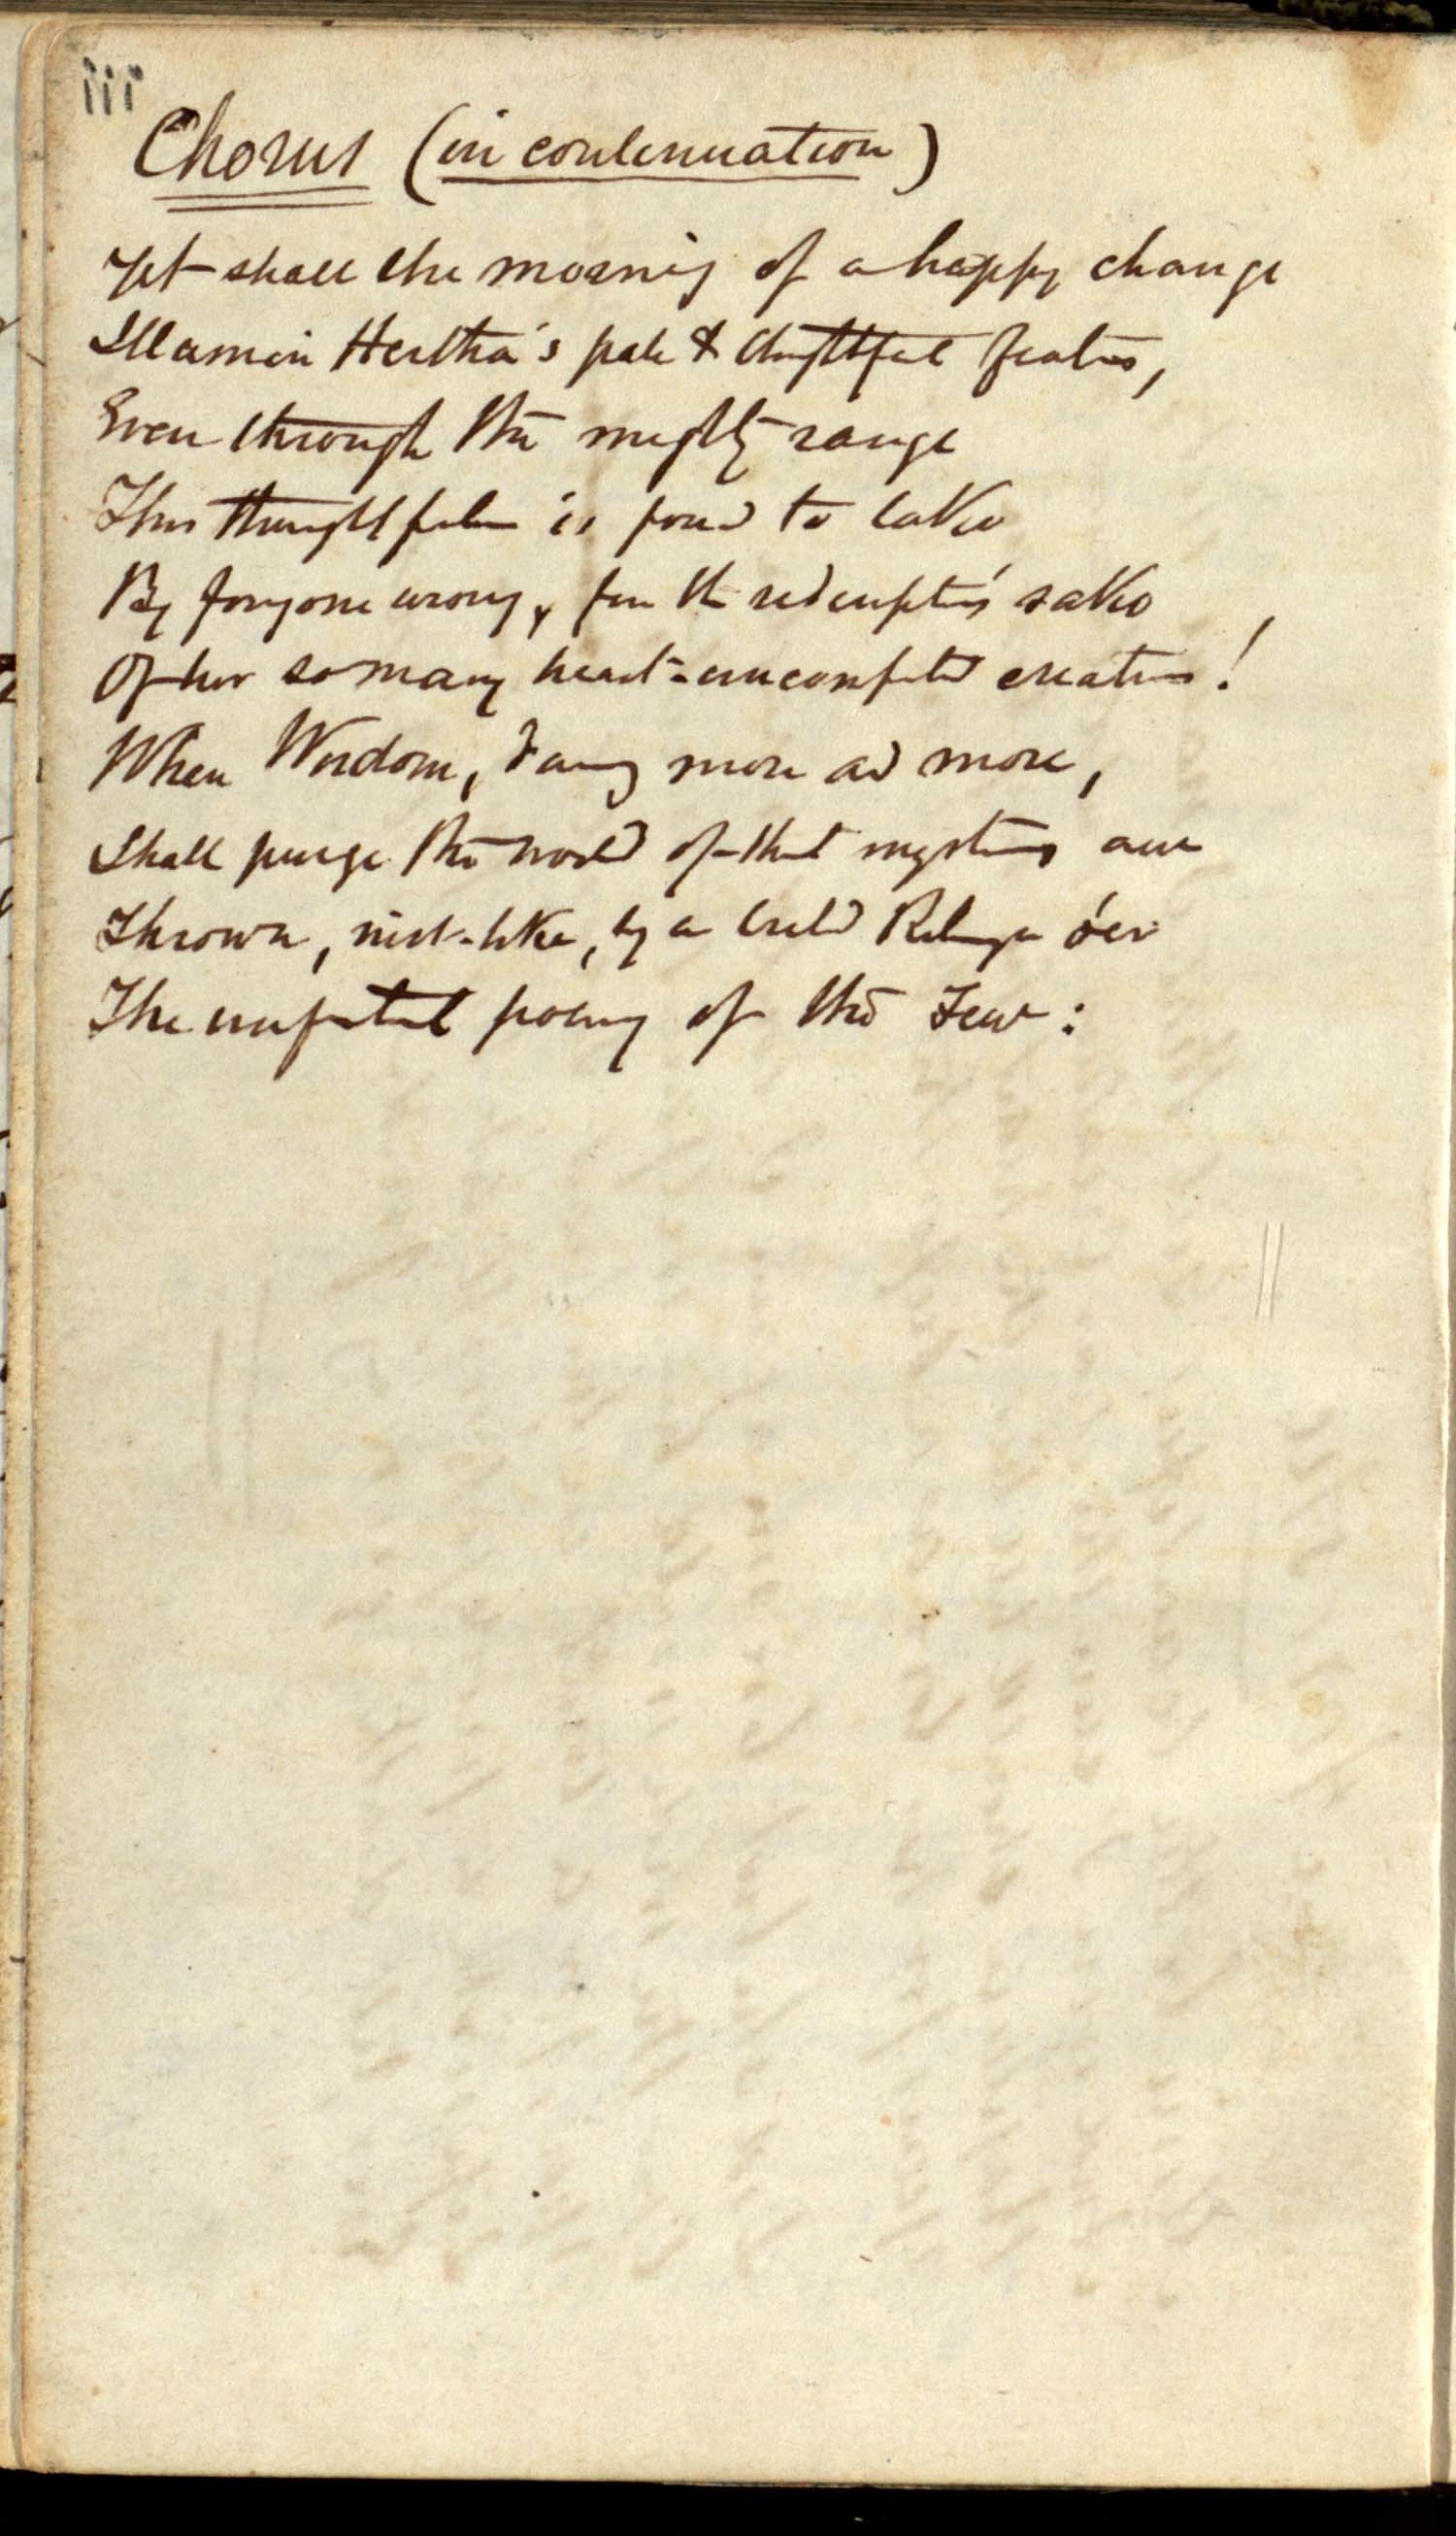 iii
Chorus (in continuation)
Yet shall the morning of a happy change
Illumin Hertha's pale & thoughtful features,
Even through the mighty range
Thus thoughtful is found to take
By foregone wrong, for the redemption's sake
Of her so many heart-uncomforted creatures!
When Wisdom, more and more,
Shall purge the world of that mysterious awe
Thrown, mist-like, by a Religion o'er
The of the Few: